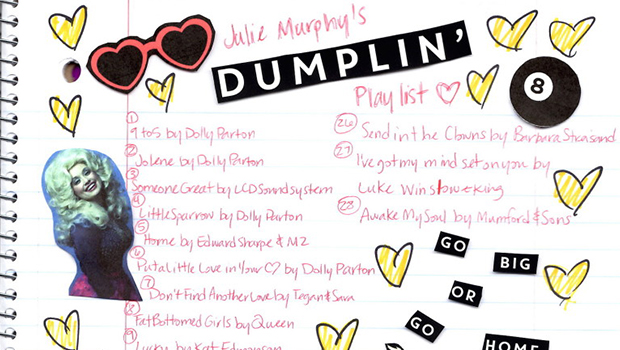 Julie Murphy's
DUMPLIN'
Playlist ♡
① 
9 to 5 by Dolly Parton
②
Jolene by Dolly Parton
③
Someone Great by LCD Soundsystem
④
Little Sparrow by Dolly Parton
⑤
Home by Edward Sharpe & MZ
⑥
Put a Little Love in Your ♡ by Dolly Parton
⑦
Don't Find Another Love by Tegan & Sara
⑧
Fat Bottomed Girls by Queen
⑨
Lucky by Kat Edmonson
8
26 Send in the Clowns by Barbara
27 I've got my mind set on you by
Luke Winslow-King
28 Awake My Soul by Mumford & Sons
GO BIG
OR
GO HOME